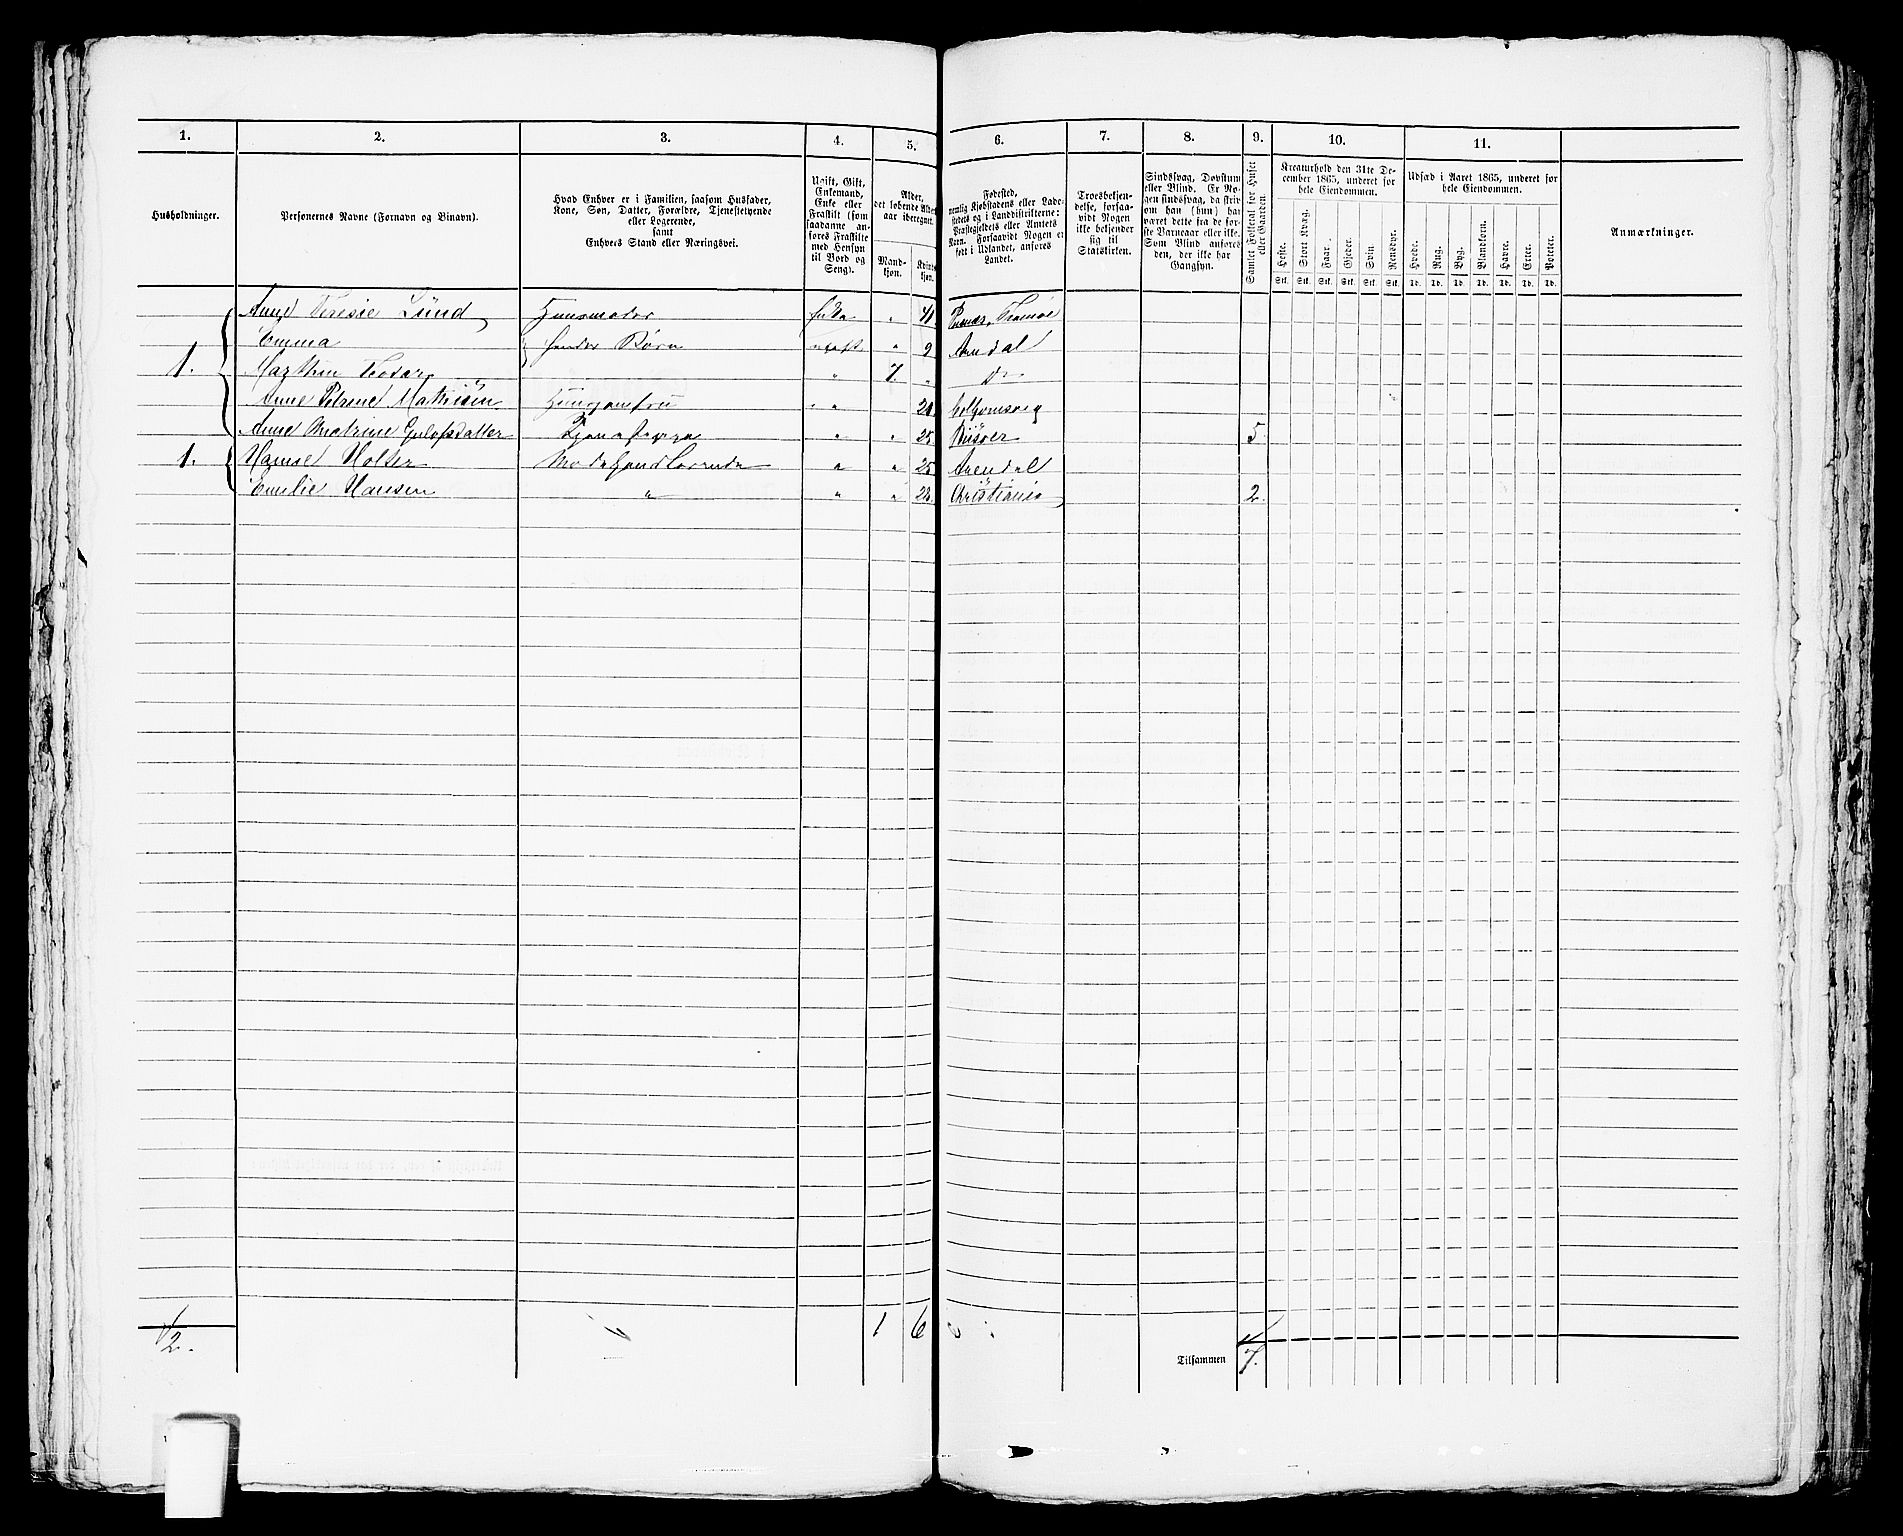 1. 2. 3. 4. 5. 6. 7. 8. 9. 10. 11.
Husholdninger.
Personernes Navne (Fornavn og Binavn).
Hvad Enhver er i Familien, saasom Husfader,
Kone, Søn, Datter, Forældre, Tjenestetyende
eller Logerende,
samt
Enhvers Stand eller Næringsvei.
Ugift, Gift,
Enkemand,
Enke eller
Fraskilt (som
saadanne an-
føres Fraskilte
med Hensyn
til Bord og
Seng).
Alder,
det løbende Alders-
aar iberegnet.
Mand-
kjøn.
Kvinde-
kjøn.
Fødested,
nemlig Kjøbstadens eller Lade-
stedets og i Landdistrikterne:
Præstegjeldets eller Amtets
Navn. Forsaavidt Nogen er
født i Udlandet, anføres
Landet.
Troesbekjen-
delse, forsaa-
vidt Nogen
ikke bekjender
sig til
Statskirken.
Sindssvag, Døvstum
eller Blind. Er No-
gen sindssvag, da skriv
som han (hun) har
været dette fra de før-
ste Barneaar eller ikke.
Som Blind anføres
den, der ikke har
Gangsyn.
Samlet Folketal for Huset
eller Gaarden.
Kreaturhold den 31te De-
cember 1865, underet for
hele Eiendommen.
Heste. Stort Kvæg. Faar. Gjeder. Svin Rensdyr.
Stk. Stk. Stk. Stk. Stk. Stk.
Udsæd i Aaret 1865, underet for
hele Eiendommen.
Hvede. Rug. Byg. Blandkorn. Havre. Erter. Poteter.
Td. Td. Td. Td. Td. Td. Td.
Anmærkninger.
Anne Teresie Lund Huusmoder Enke " 41 Tromøe
Emma hendes Børn ugift " 9 Arendal
1. Marthin Teodor " 7 " do
Anne Petrine Mathisen Huusjomfru " 20
Anne Matrine Gulofsdatter Tjenestepige " " 25 Riisøer 5.
1. Hansine Holter Modehandlerinde " " 25 Arendal
Emilie Hansen " " " 28. Christiania 2.
2. 1 6
Tilsammen 7.